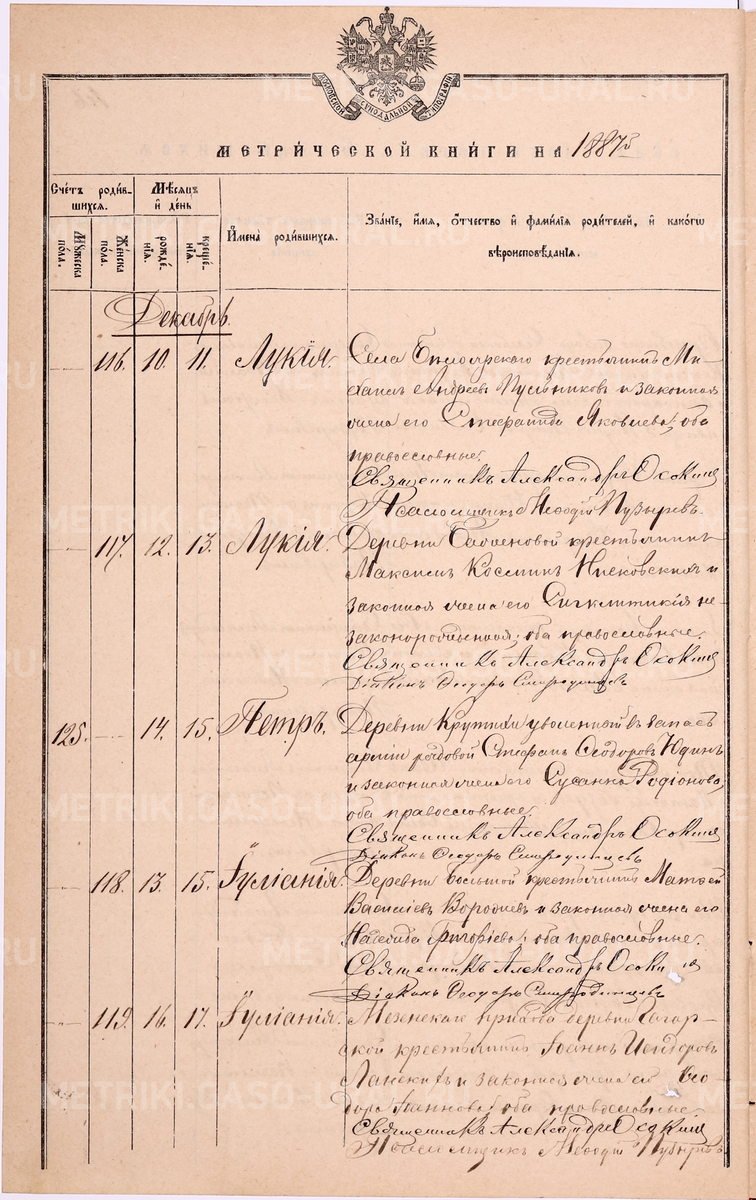 МОСКОВСКОЙ СѴНОДАЛЬНОЙ ТИПОГРАФІИ
МЕТРИ́ЧЕСКОЙ КНИ́ГИ НА 1887й
Сче́тъ роди́в-
шихся.
Мѣ́сяцъ
и҆ де́нь
Му́жеска
по́ла.
Же́нска
по́ла.
рожде́-
нїя.
креще́-
нїя.
И҆мена̀ роди́вшихся.
Зва́нїе, и҆́мя, ѻ҆́тчество и҆ фами́лїя роди́телей, и҆ како́гѡ
вѣроисповѣ́данїя.
Декабрь.
116. 10. 11. Лукія. Села Бѣлоярскаго крестьянинъ Ми-
хаилъ Андреевъ Пусынников и законная
жена его Стефанида Яковлева; оба
православные.
Священникъ Александръ Осокинъ
Псаломщикъ Меѳодій Пузыревъ.
117. 12. 13. Лукія. Деревни крестьянинъ
Максимъ Космин и
законная жена его Синклитикія не-
законорожденная; оба православные.
Священникъ Александръ Осокинъ
Діяконъ Ѳеодоръ Смородинцевъ
125. 14. 15. Петръ. Деревни Крутихи уволенный въ запасъ
арміи рядовой Стефанъ Ѳеодоровъ Юдинъ
и законная жена его Сусанна Родіонова,
оба православные.
Священникъ Александръ Осокинъ
Діяконъ Ѳеодоръ Смородинцевъ
118. 13. 15. Іуліанія. Деревни Большой крестьянинъ Матѳей
Василіевъ и законная жена его
Григоріева; оба православные.
Священникъ Александръ Осокинъ
Діяконъ Ѳеодоръ Смородинцевъ
119. 16. 17. Іуліанія. Мезенскаго прихода деревни
крестьянинъ Іоаннъ
и законная жена его Ѳео-
дора Іоаннова; оба православные
Священникъ Александръ Осокинъ
Псаломщикъ Меѳодій Пузыревъ
METRIKI.GASO-URAL.RU